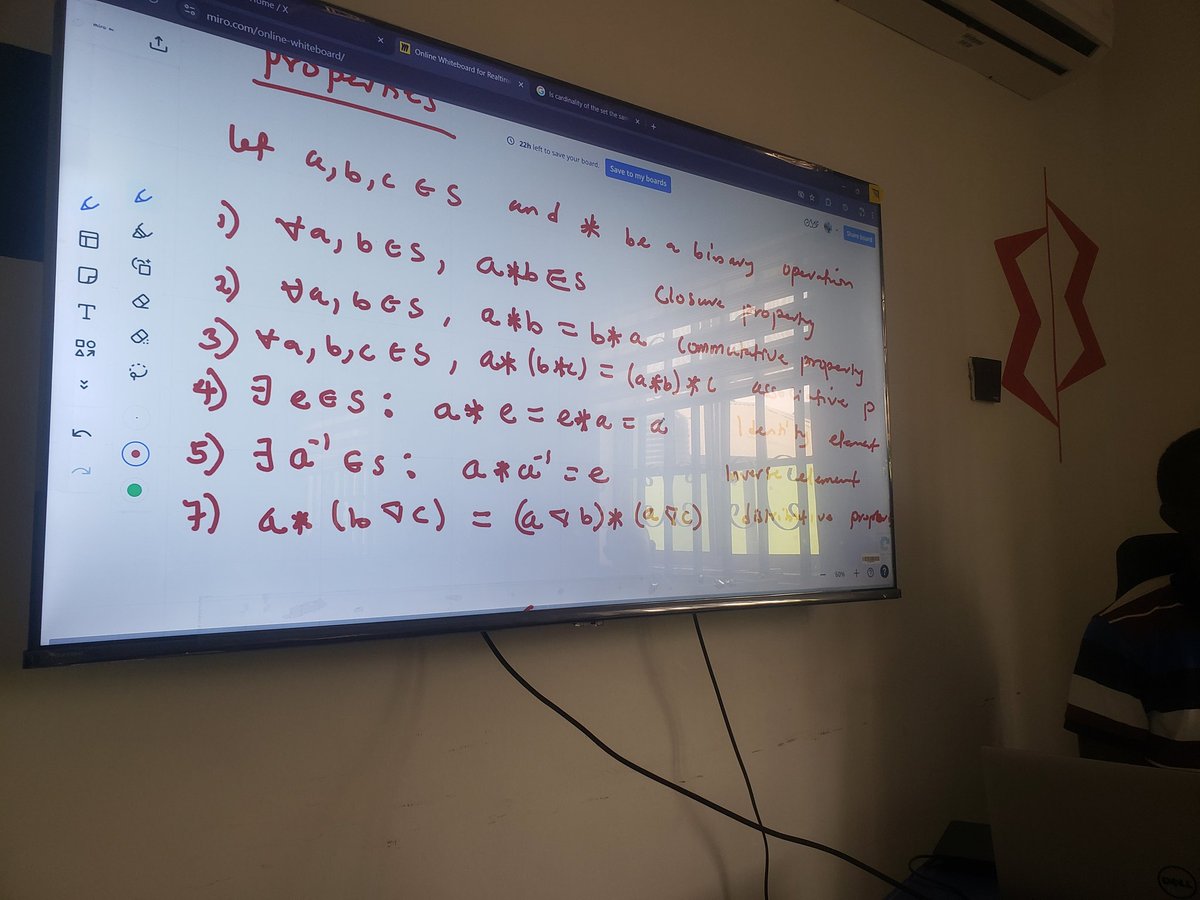 Home / X
miro.com/online-whiteboard/
Online Whiteboard for Realtim
Is cardinality of the set the sam
miro
22h left to save your board.
Save to my boards
Share board
properties
let a, b, c ∈ S and * be a binary operation
1) ∀a, b ∈ S, a*b ∈ S Closure property
2) ∀a, b ∈ S, a*b = b*a Commutative property
3) ∀a, b, c ∈ S, a*(b*c) = (a*b)*c associative p
4) ∃ e ∈ S : a*e = e*a = a Identity element
5) ∃ a⁻¹ ∈ S : a*a⁻¹ = e Inverse element
7) a*(b ∇ c) = (a ∇ b)*(a ∇ c) distributive proper
T
60%
DELL